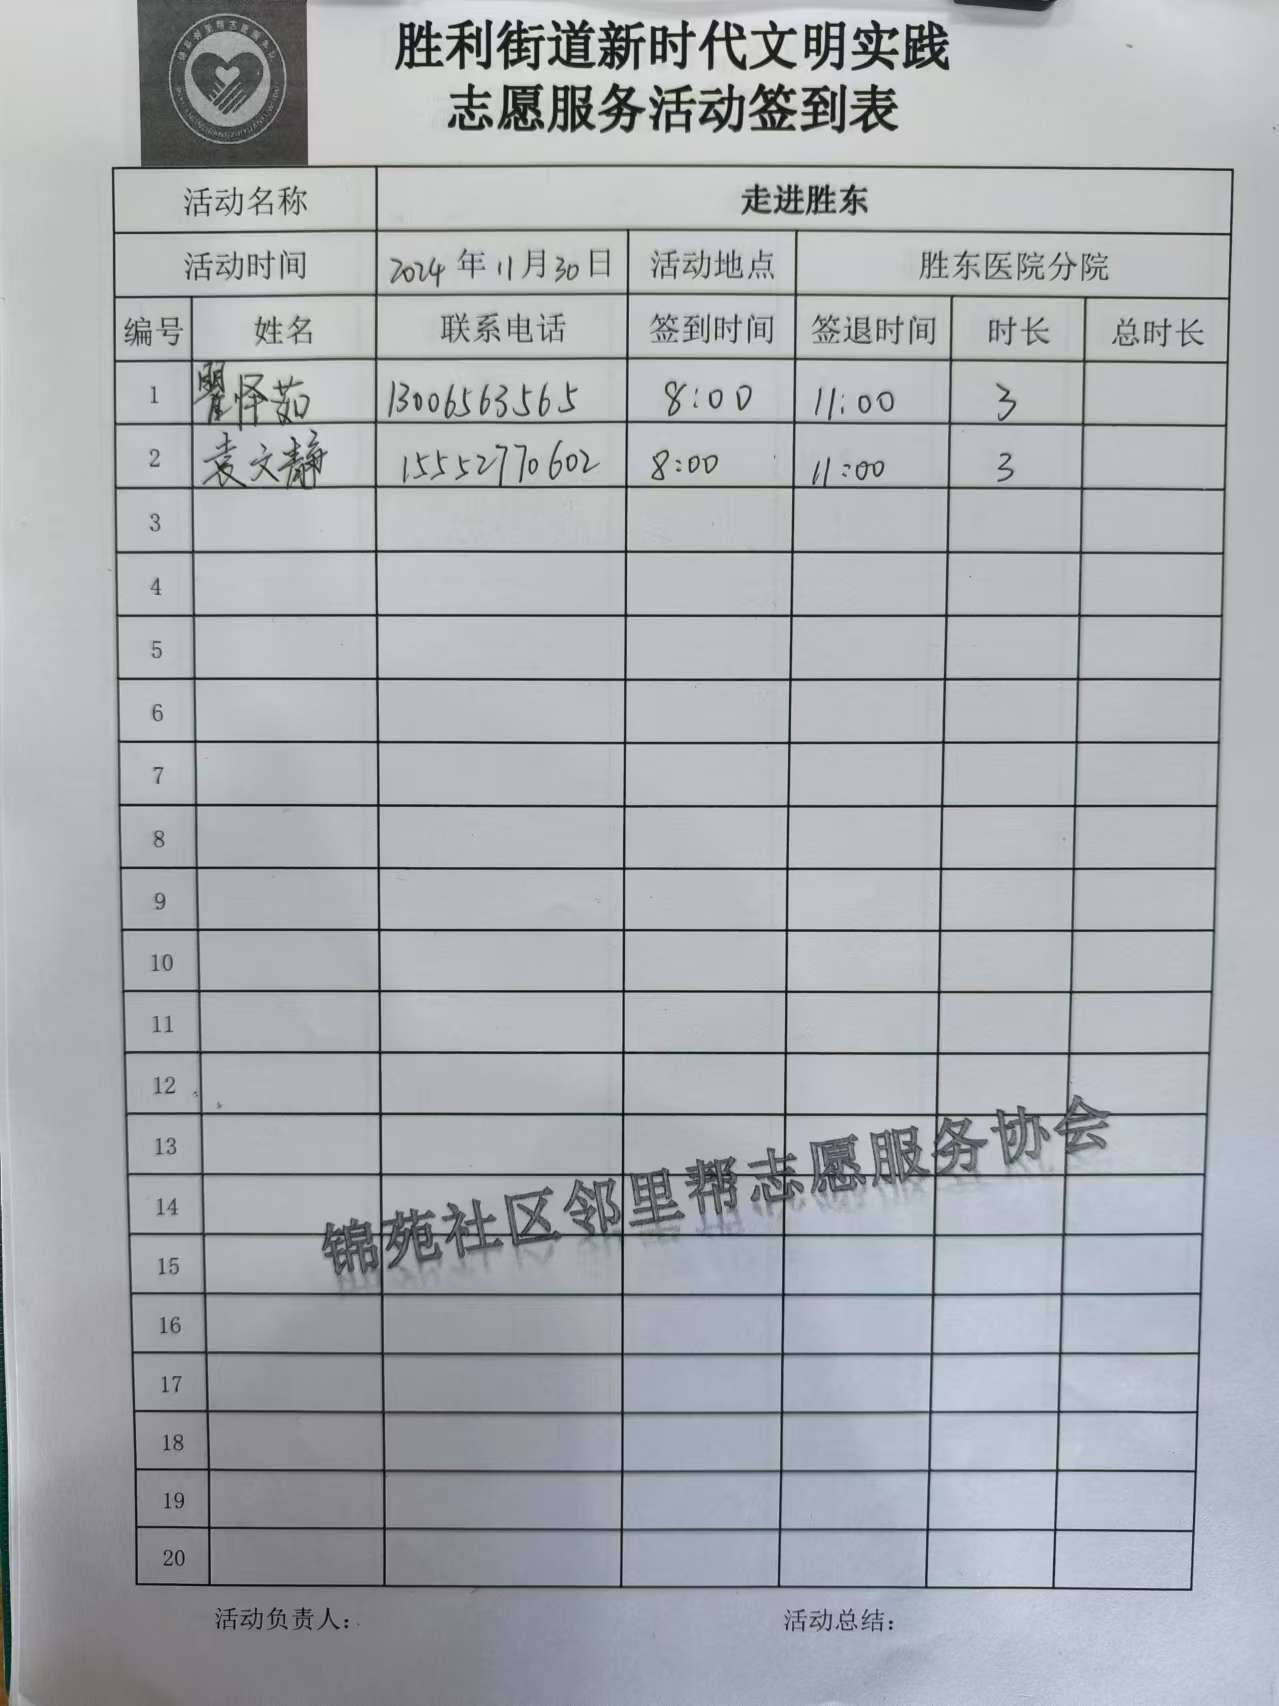 胜利街道新时代文明实践
志愿服务活动签到表
活动名称 走进胜东
活动时间 2024年11月30日 活动地点 胜东医院分院
编号 姓名 联系电话 签到时间 签退时间 时长 总时长
1 瞿怿茹 13006563565 8:00 11:00 3
2 袁文静 15552770602 8:00 11:00 3
3
4
5
6
7
8
9
10
11
12
13
14
15
16
17
18
19
20
锦苑社区邻里帮志愿服务协会
活动负责人: 活动总结: